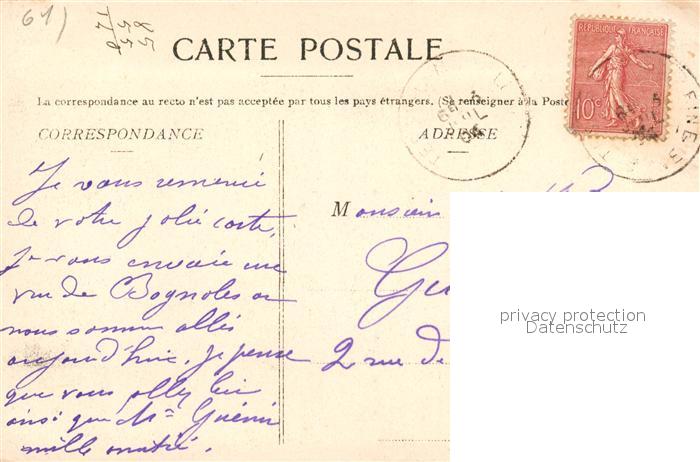 61)
CARTE POSTALE
RÉPUBLIQUE FRANÇAISE
10c
La correspondance au recto n'est pas acceptée par tous les pays étrangers. (Se renseigner à la Poste
CORRESPONDANCE
ADRESSE
Je vous remercie
de votre jolie carte,
je vous envoie une
vue de Bagnoles ou
nous sommes allés
aujourd'hui. Je pense
que vous allez bien
ainsi que Mme Guérin
mille amitié.
Monsieur
Gu
2 rue de
privacy protection
Datenschutz